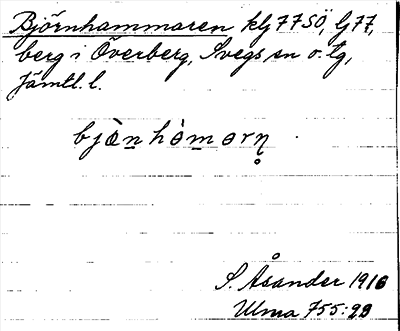 Björnhammaren klg 77 SÖ, lg 77,
berg i Överberg, Svegs sn o. tg,
Jämtl. l.
bjὰn hὰmarn̥ .
S. Åsander 1916
Ulma 755:29